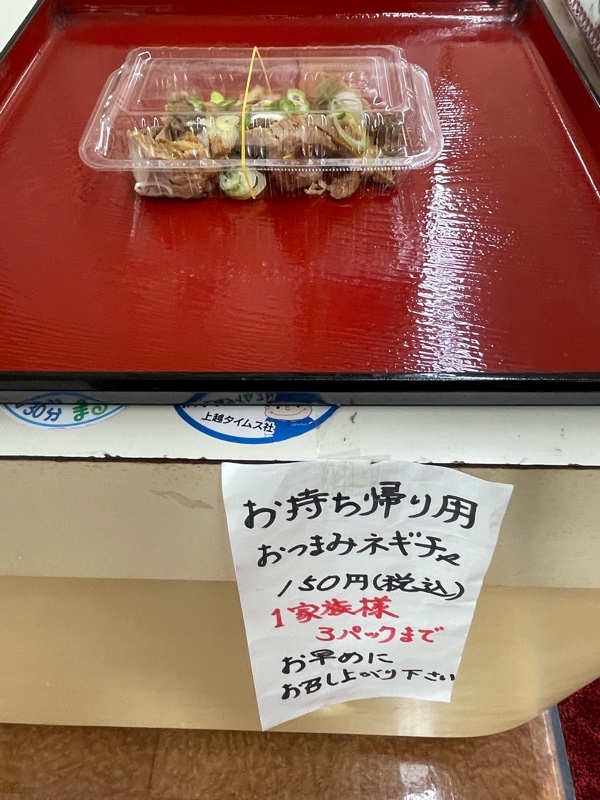 30分
上越タイムス社
お持ち帰り用
おつまみネギチャ
150円(税込)
1家族様
3パックまで
お早めに
お召し上がり下さい